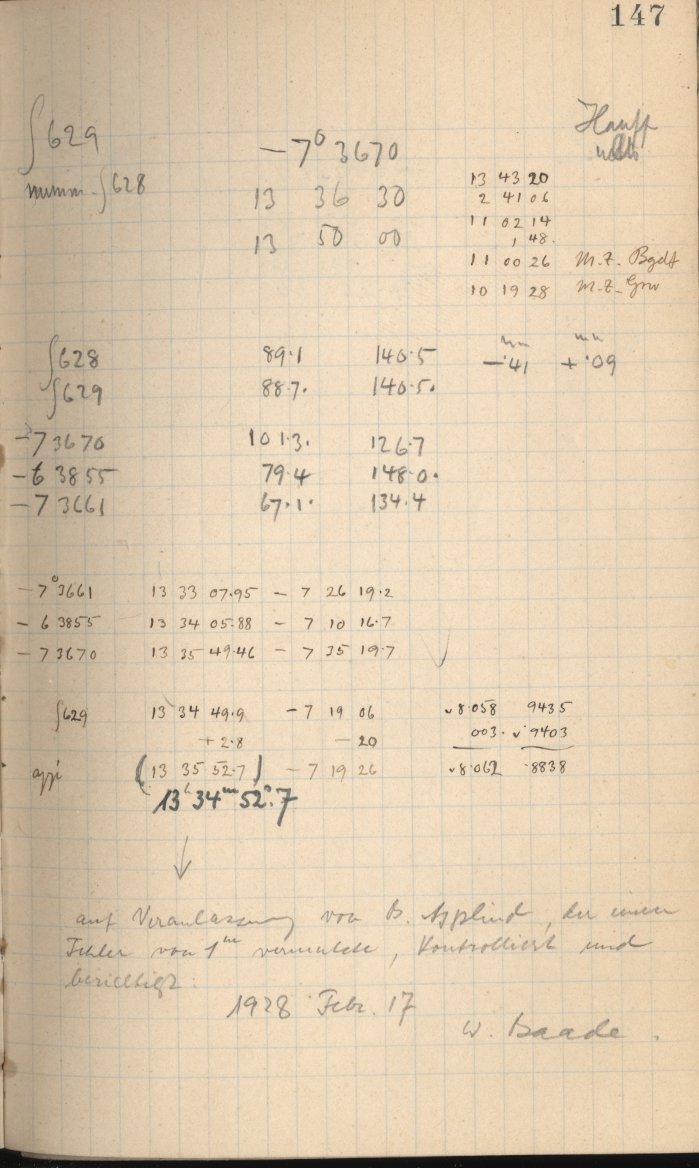 147
∫629 −7° 3670 Hauff
numm. ∫628 13 36 30
13 50 00
13 43 20
2 41 06
11 02 14
1 48.
11 00 26 M.Z. Bgdf
10 19 28 M.Z. Grw
∫628 89.1 140.5 −.41 +.09
∫629 88.7. 140.5.
−7 3670 101.3. 126.7
−6 3855 79.4 148.0.
−7 3661 67.1. 134.4
−7° 3661 13 33 07.95 − 7 26 19.2
− 6 3855 13 34 05.88 − 7 10 16.7
− 7 3670 13 35 49.46 − 7 35 19.7
∫629 13 34 49.9 −7 19 06 8.058 9435
+2.8 −20 003. 9403
(13 35 52.7) −7 19 26 8.062 .8838
13ʰ 34ᵐ 52ˢ.7
↓
auf Veranlassung von B. Asplind, der einen
Fehler von 1ᵐ vermutete, kontrolliert und
berichtigt.
1928 Febr. 17
W. Baade.